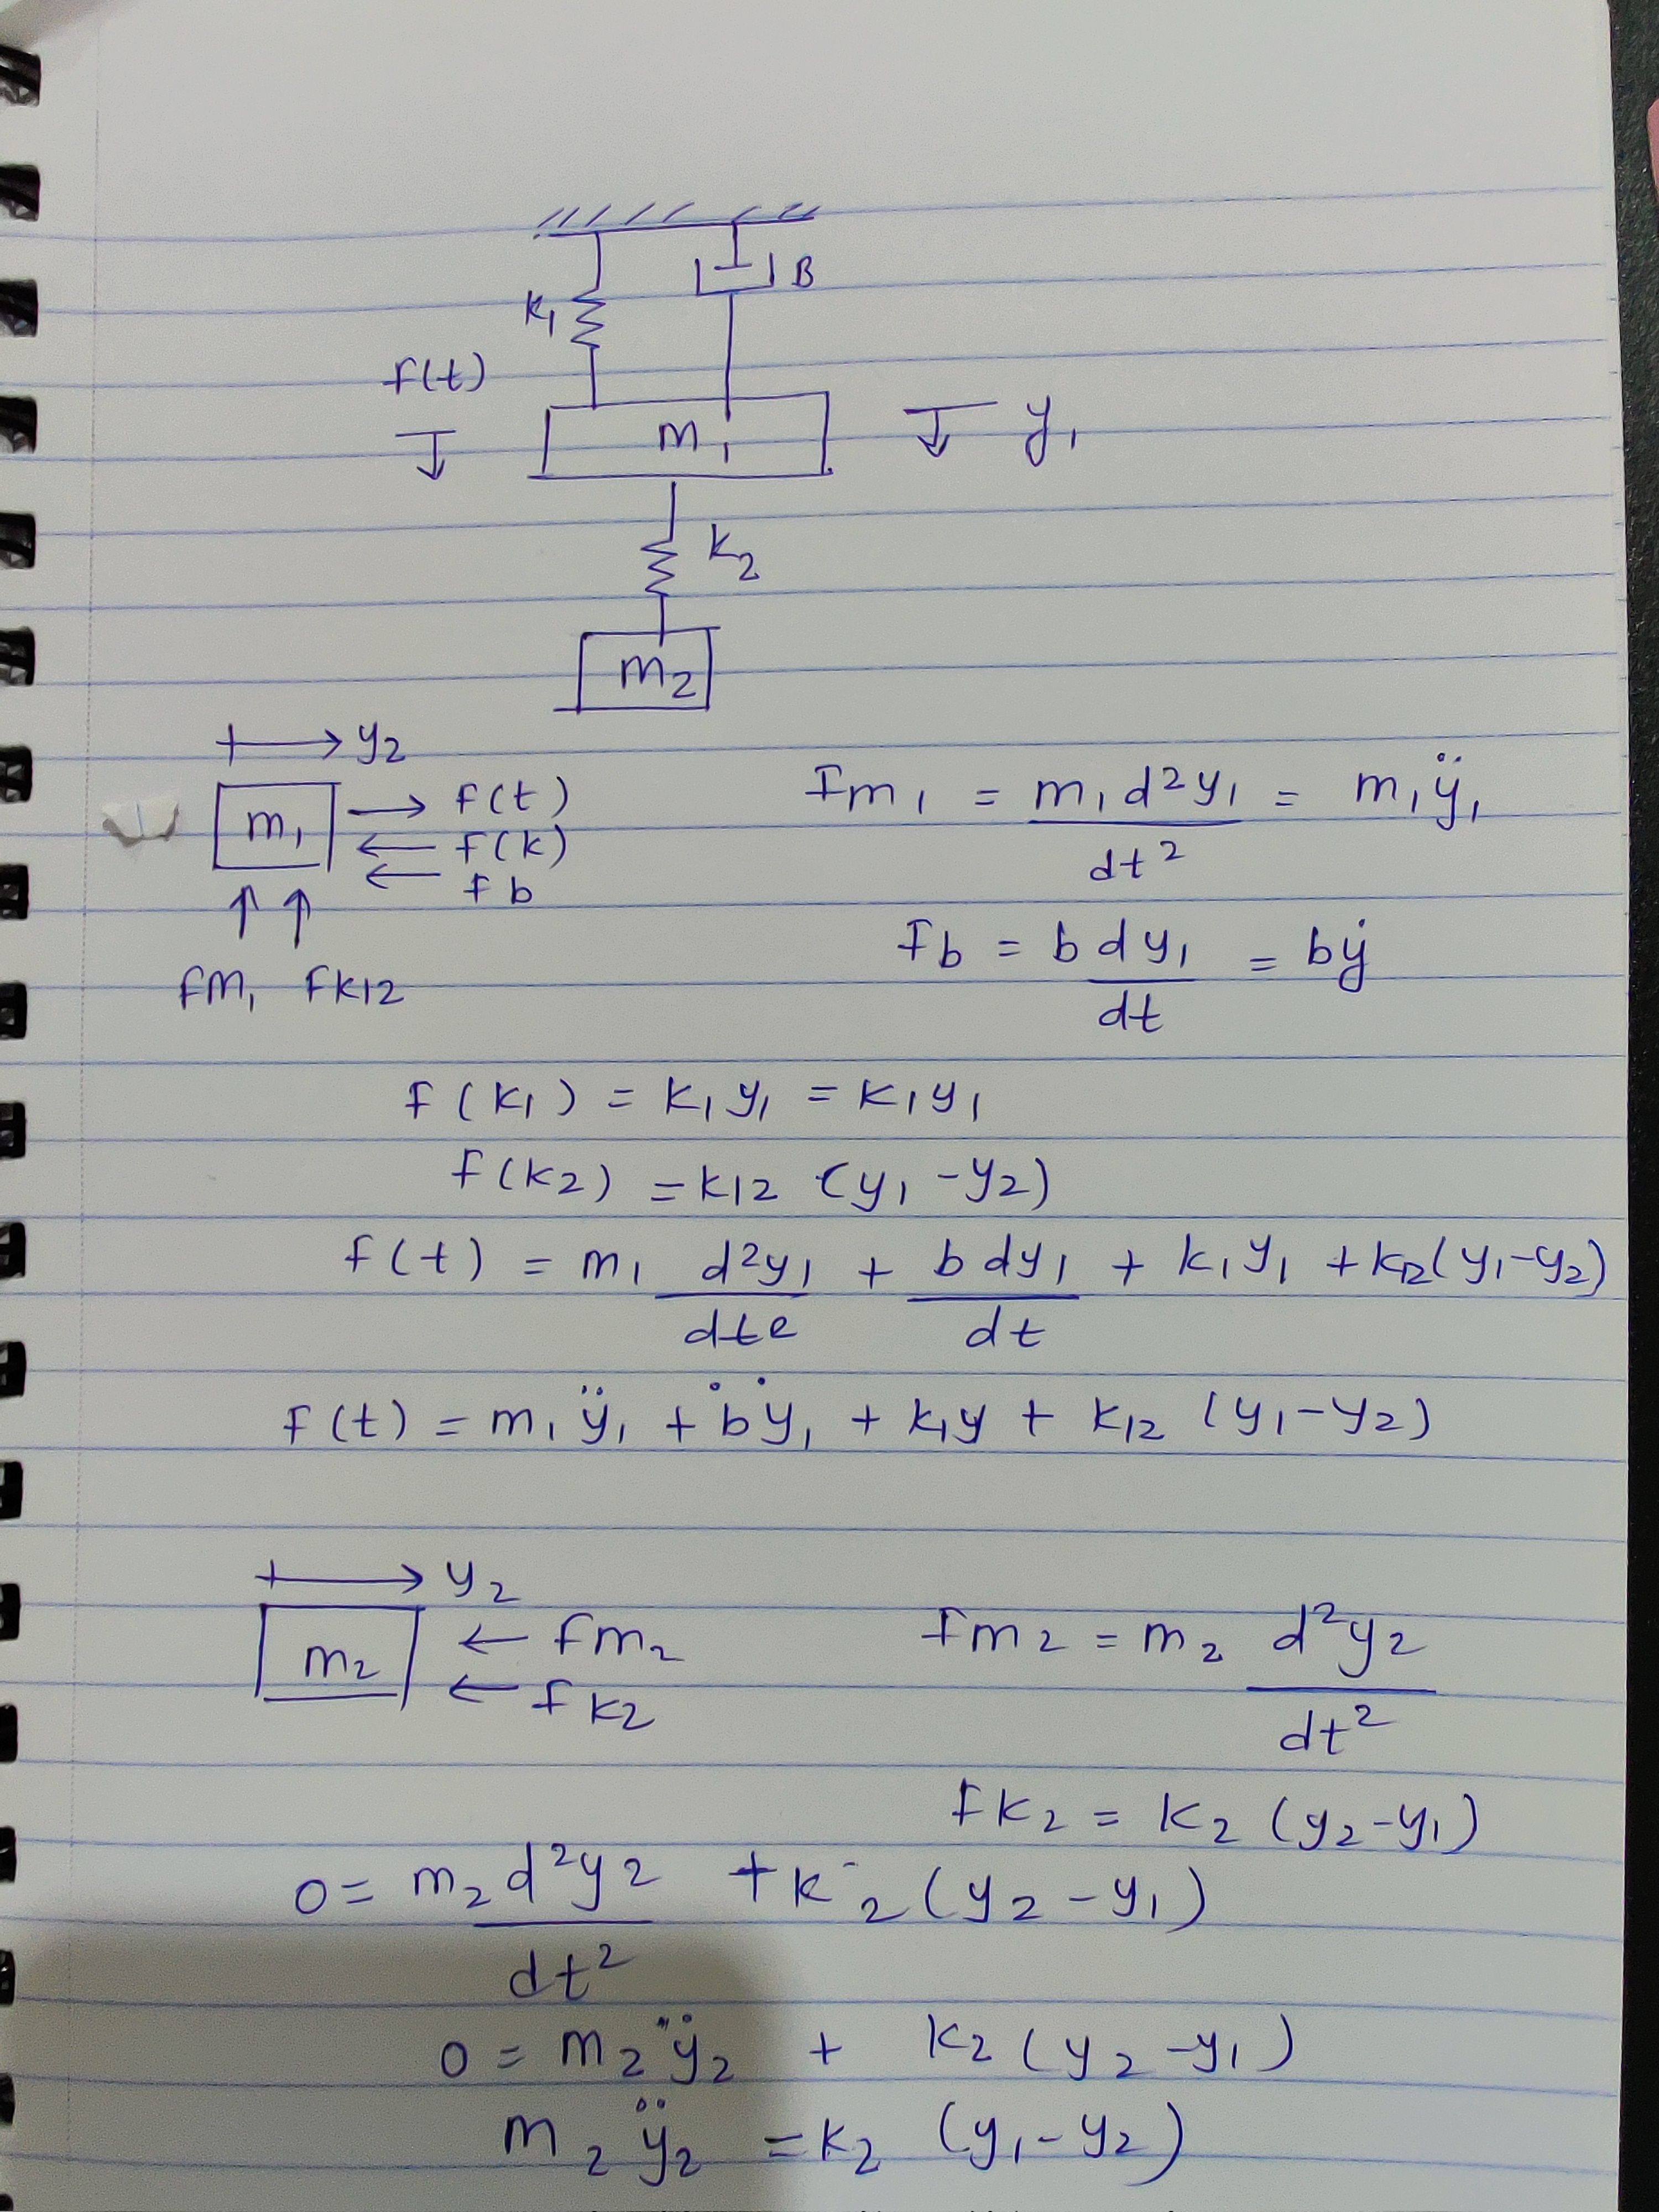 B
K1
f(t)
m1 y1
K2
m2
y2
m1 f(t)
f(k)
fb
fM1 fK12
Fm1 = m1 d²y1 = m1ÿ1
dt²
Fb = b dy1 = bẏ
dt
f(K1) = K1 y1 = K1 y1
f(K2) = K12 (y1 - y2)
f(t) = m1 d²y1 + b dy1 + K1 y1 + K12 (y1 - y2)
dte dt
f(t) = m1 ÿ1 + ḃẏ1 + K1y + K12 (y1 - y2)
y2
m2 fm2
fK2
Fm2 = m2 d²y2
dt²
FK2 = K2 (y2 - y1)
0 = m2 d²y2 + K2 (y2 - y1)
dt²
0 = m2 ÿ2 + K2 (y2 - y1)
m2 ÿ2 = K2 (y1 - y2)